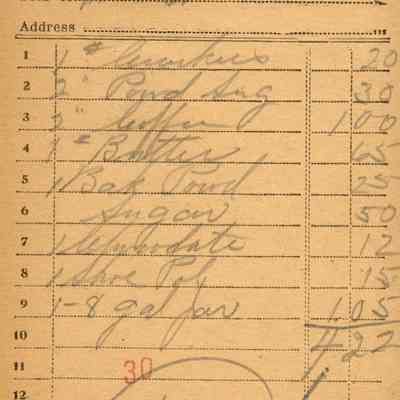 Address
1 1 # 20
2 2 " Powd Sug 30
3 2 " Coffee 1 00
4 1 # Butter 65
5 1 Bak Powd 25
6 Sugar 50
7 1 12
8 1 Shoe Pol 15
9 1-8 gal jar 1 05
10 4 22
11 30
12